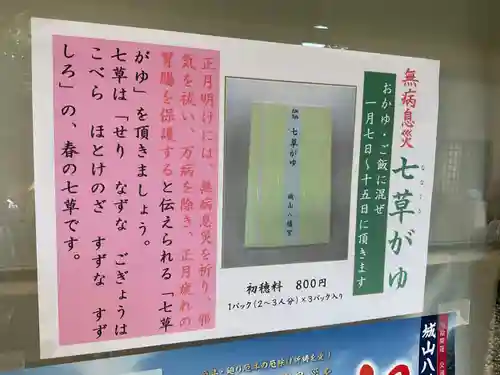 無病息災
七草がゆ
ななくさ
おかゆ・ご飯に混ぜ
一月七日〜十五日に頂きます
七草がゆ
城山八幡宮
初穂料 800円
1パック(2〜3人分)×3パック入り
正月明けには、無病息災を祈り、邪
気を祓い、万病を除き、正月疲れの
胃腸を保護すると伝えられる「七草
がゆ」を頂きましょう。
七草は「せり なずな ごぎょうは
こべら ほとけのざ すずな すず
しろ」の、春の七草です。
城山八